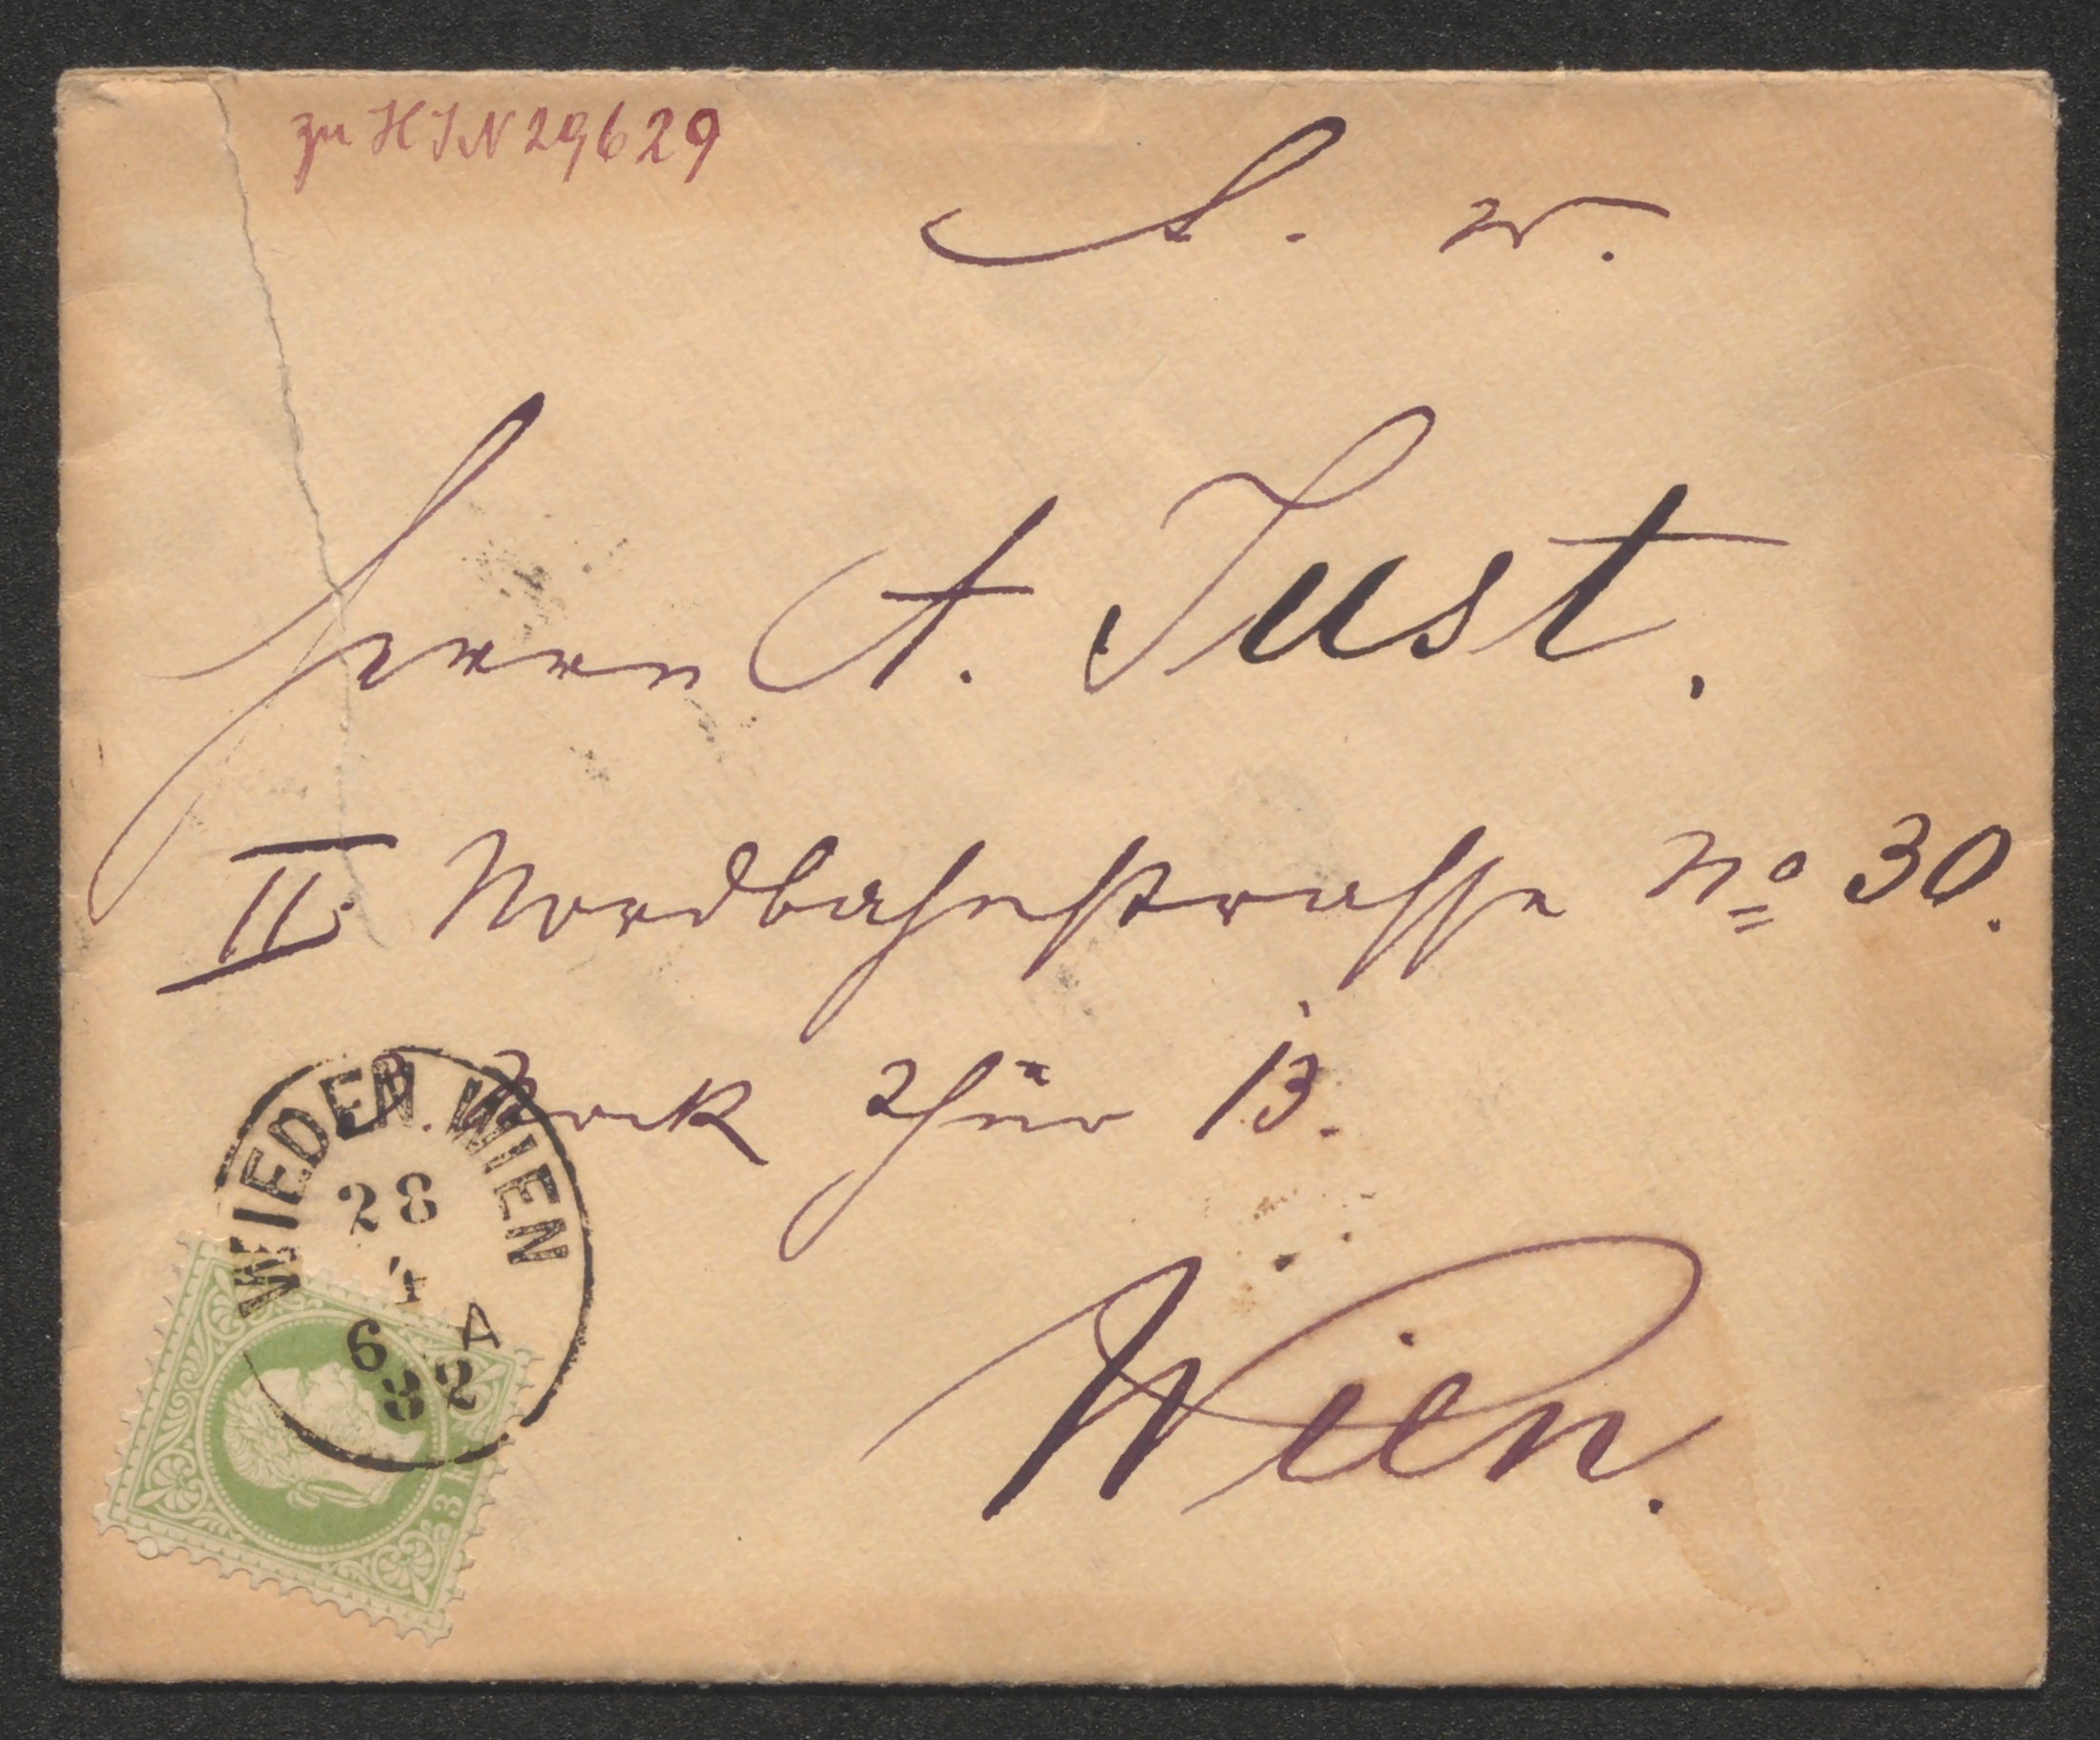 zu HIN 29629
S. W.
Herrn A. Just.
II. Nordbahnstrasse No 30.
Stock Thür 13.
Wien.
WIEDEN WIEN
28
4
6 A
82
3 K